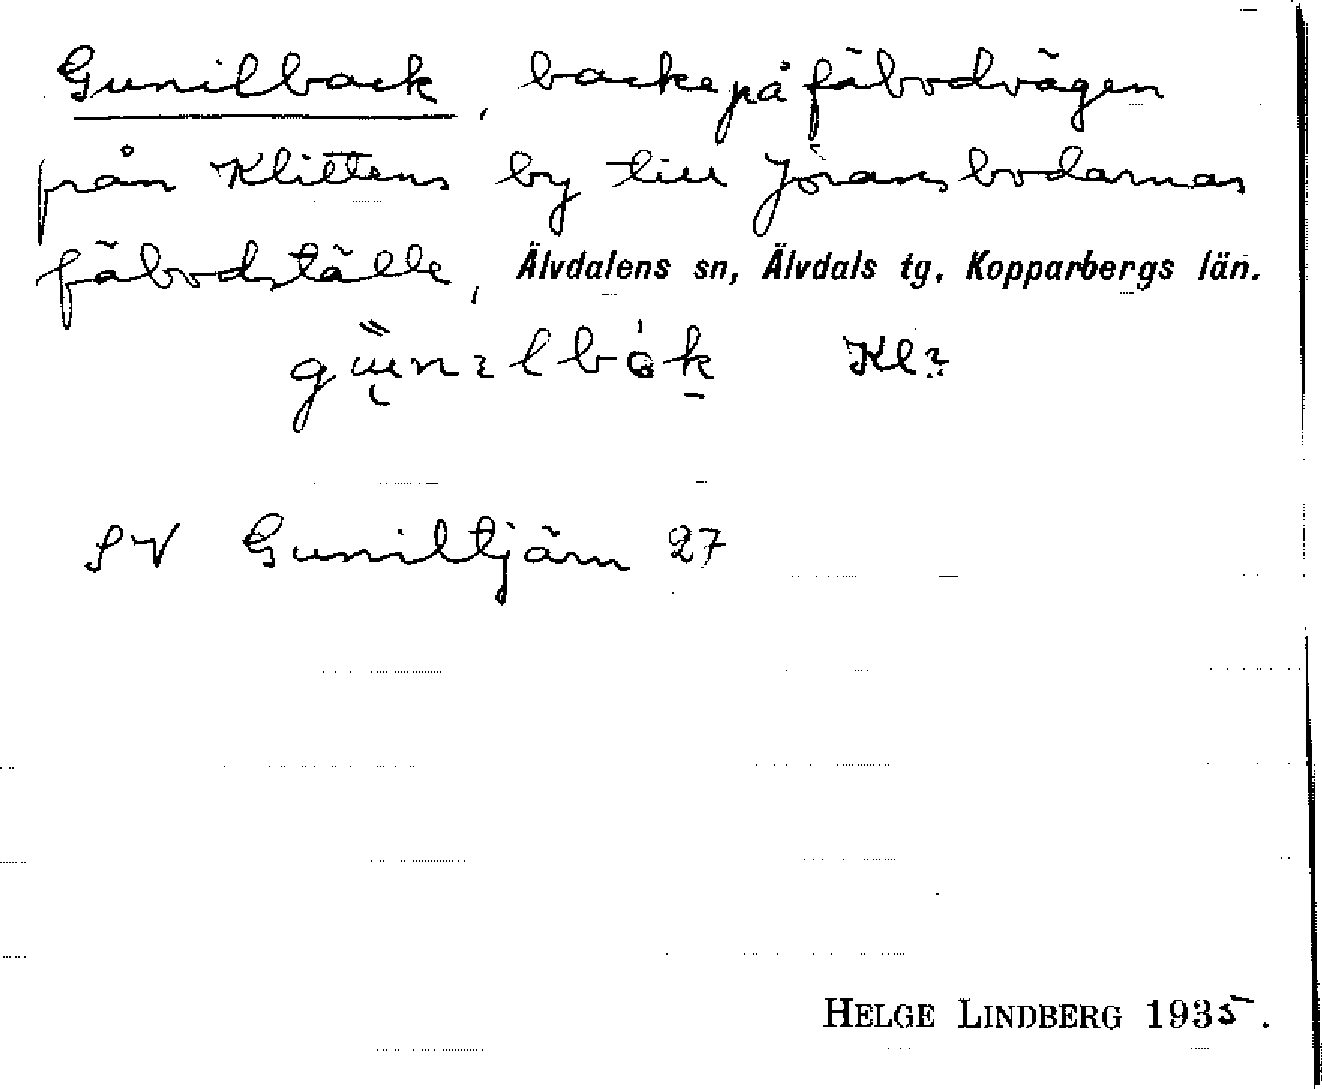 Gunilback, backe på fäbodvägen
från Klittens by till Jöransbodarnas
fäbodställe, Älvdalens sn, Älvdals tg. Kopparbergs län.
Kl?
SV Guniltjärn 27
HELGE LINDBERG 1935.